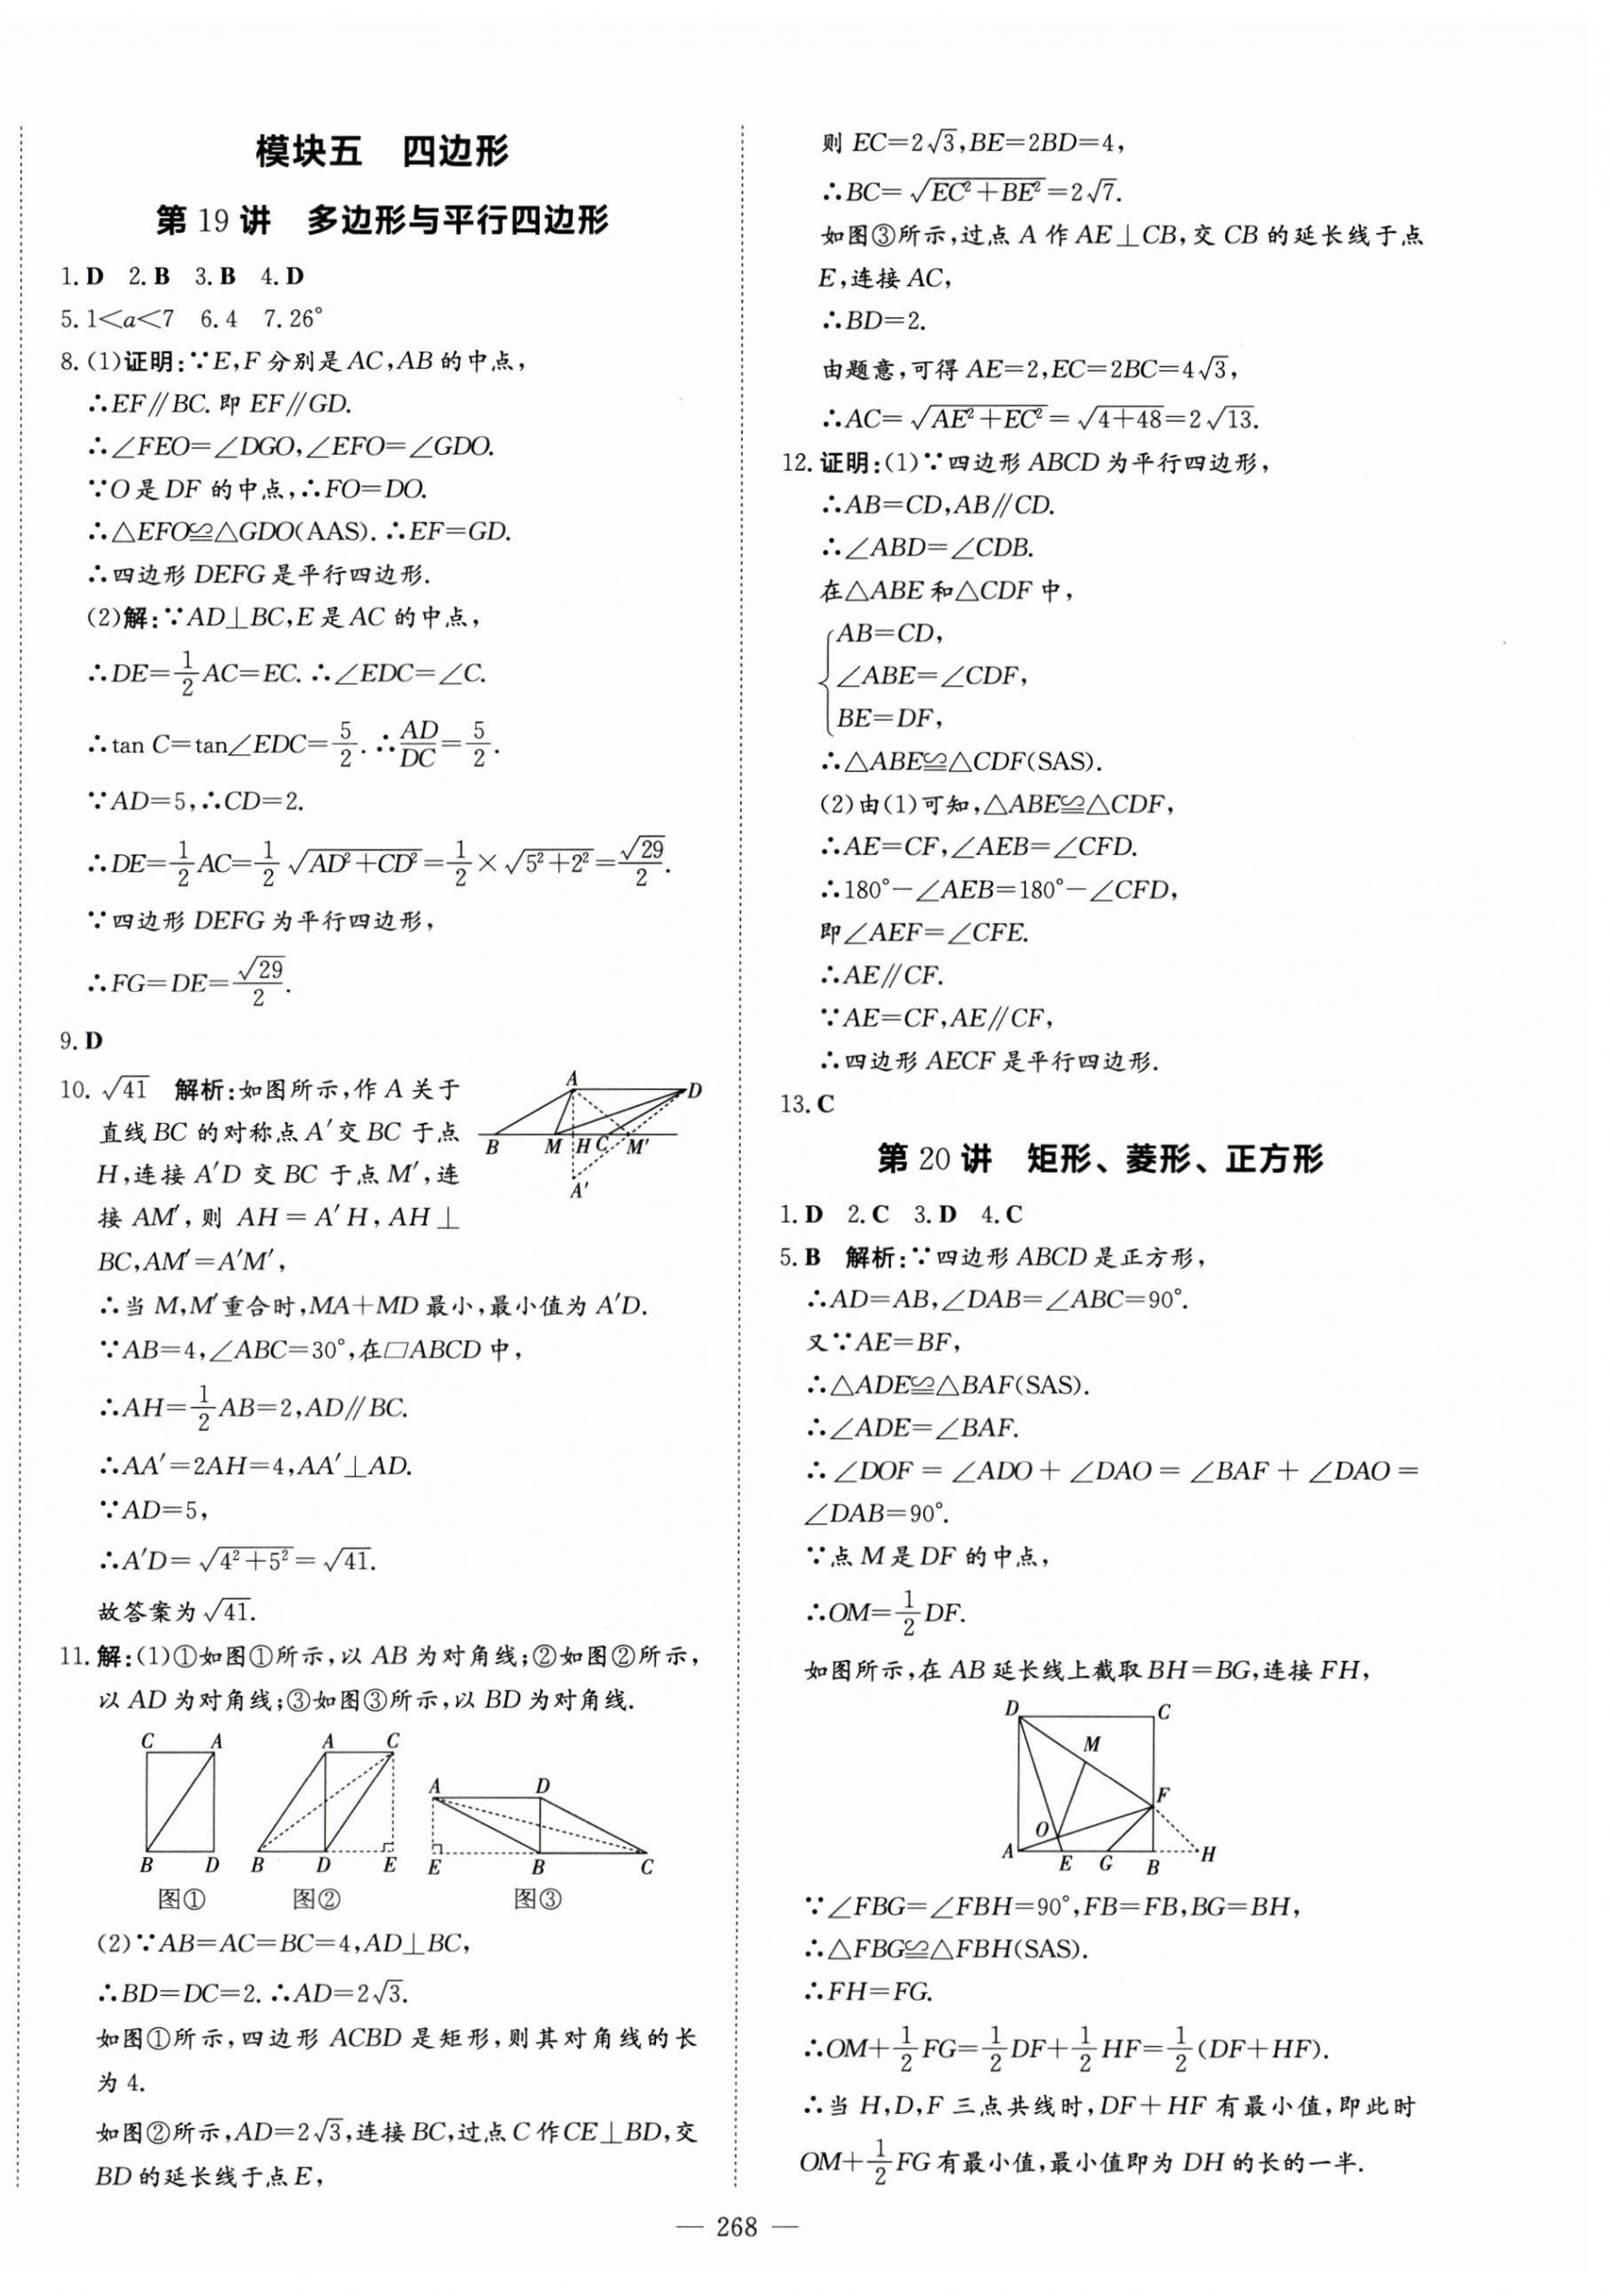 模块五　四边形
第 19 讲　多边形与平行四边形
1. D　2. B　3. B　4. D
5. 1<a<7　6. 4　7. 26°
8. (1)证明:∵E,F 分别是 AC,AB 的中点,
∴EF∥BC. 即 EF∥GD.
∴∠FEO=∠DGO,∠EFO=∠GDO.
∵O 是 DF 的中点,∴FO=DO.
∴△EFO≌△GDO(AAS). ∴EF=GD.
∴四边形 DEFG 是平行四边形.
(2)解:∵AD⊥BC,E 是 AC 的中点,
∴DE=1/2 AC=EC. ∴∠EDC=∠C.
∴tan C=tan∠EDC=5/2. ∴AD/DC=5/2.
∵AD=5,∴CD=2.
∴DE=1/2 AC=1/2 √(AD²+CD²)=1/2×√(5²+2²)=√29/2.
∵四边形 DEFG 为平行四边形,
∴FG=DE=√29/2.
9. D
10. √41　解析:如图所示,作 A 关于
直线 BC 的对称点 A′交 BC 于点
H,连接 A′D 交 BC 于点 M′,连
接 AM′,则 AH=A′H,AH⊥
BC,AM′=A′M′,
A
D
B
M
H
C
M′
A′
∴当 M,M′重合时,MA+MD 最小,最小值为 A′D.
∵AB=4,∠ABC=30°,在▱ABCD 中,
∴AH=1/2 AB=2,AD∥BC.
∴AA′=2AH=4,AA′⊥AD.
∵AD=5,
∴A′D=√(4²+5²)=√41.
故答案为√41.
11. 解:(1)①如图①所示,以 AB 为对角线;②如图②所示,
以 AD 为对角线;③如图③所示,以 BD 为对角线.
C A
B D
图①
A C
B D E
图②
A D
E B C
图③
(2)∵AB=AC=BC=4,AD⊥BC,
∴BD=DC=2. ∴AD=2√3.
如图①所示,四边形 ACBD 是矩形,则其对角线的长
为 4.
如图②所示,AD=2√3,连接 BC,过点 C 作 CE⊥BD,交
BD 的延长线于点 E,
则 EC=2√3,BE=2BD=4,
∴BC=√(EC²+BE²)=2√7.
如图③所示,过点 A 作 AE⊥CB,交 CB 的延长线于点
E,连接 AC,
∴BD=2.
由题意,可得 AE=2,EC=2BC=4√3,
∴AC=√(AE²+EC²)=√(4+48)=2√13.
12. 证明:(1)∵四边形 ABCD 为平行四边形,
∴AB=CD,AB∥CD.
∴∠ABD=∠CDB.
在△ABE 和△CDF 中,
AB=CD,
∠ABE=∠CDF,
BE=DF,
∴△ABE≌△CDF(SAS).
(2)由(1)可知,△ABE≌△CDF,
∴AE=CF,∠AEB=∠CFD.
∴180°−∠AEB=180°−∠CFD,
即∠AEF=∠CFE.
∴AE∥CF.
∵AE=CF,AE∥CF,
∴四边形 AECF 是平行四边形.
13. C
第 20 讲　矩形、菱形、正方形
1. D　2. C　3. D　4. C
5. B　解析:∵四边形 ABCD 是正方形,
∴AD=AB,∠DAB=∠ABC=90°.
又∵AE=BF,
∴△ADE≌△BAF(SAS).
∴∠ADE=∠BAF.
∴∠DOF=∠ADO+∠DAO=∠BAF+∠DAO=
∠DAB=90°.
∵点 M 是 DF 的中点,
∴OM=1/2 DF.
如图所示,在 AB 延长线上截取 BH=BG,连接 FH,
D C
M
F
O
A E G B H
∵∠FBG=∠FBH=90°,FB=FB,BG=BH,
∴△FBG≌△FBH(SAS).
∴FH=FG.
∴OM+1/2 FG=1/2 DF+1/2 HF=1/2 (DF+HF).
∴当 H,D,F 三点共线时,DF+HF 有最小值,即此时
OM+1/2 FG 有最小值,最小值即为 DH 的长的一半.
— 268 —